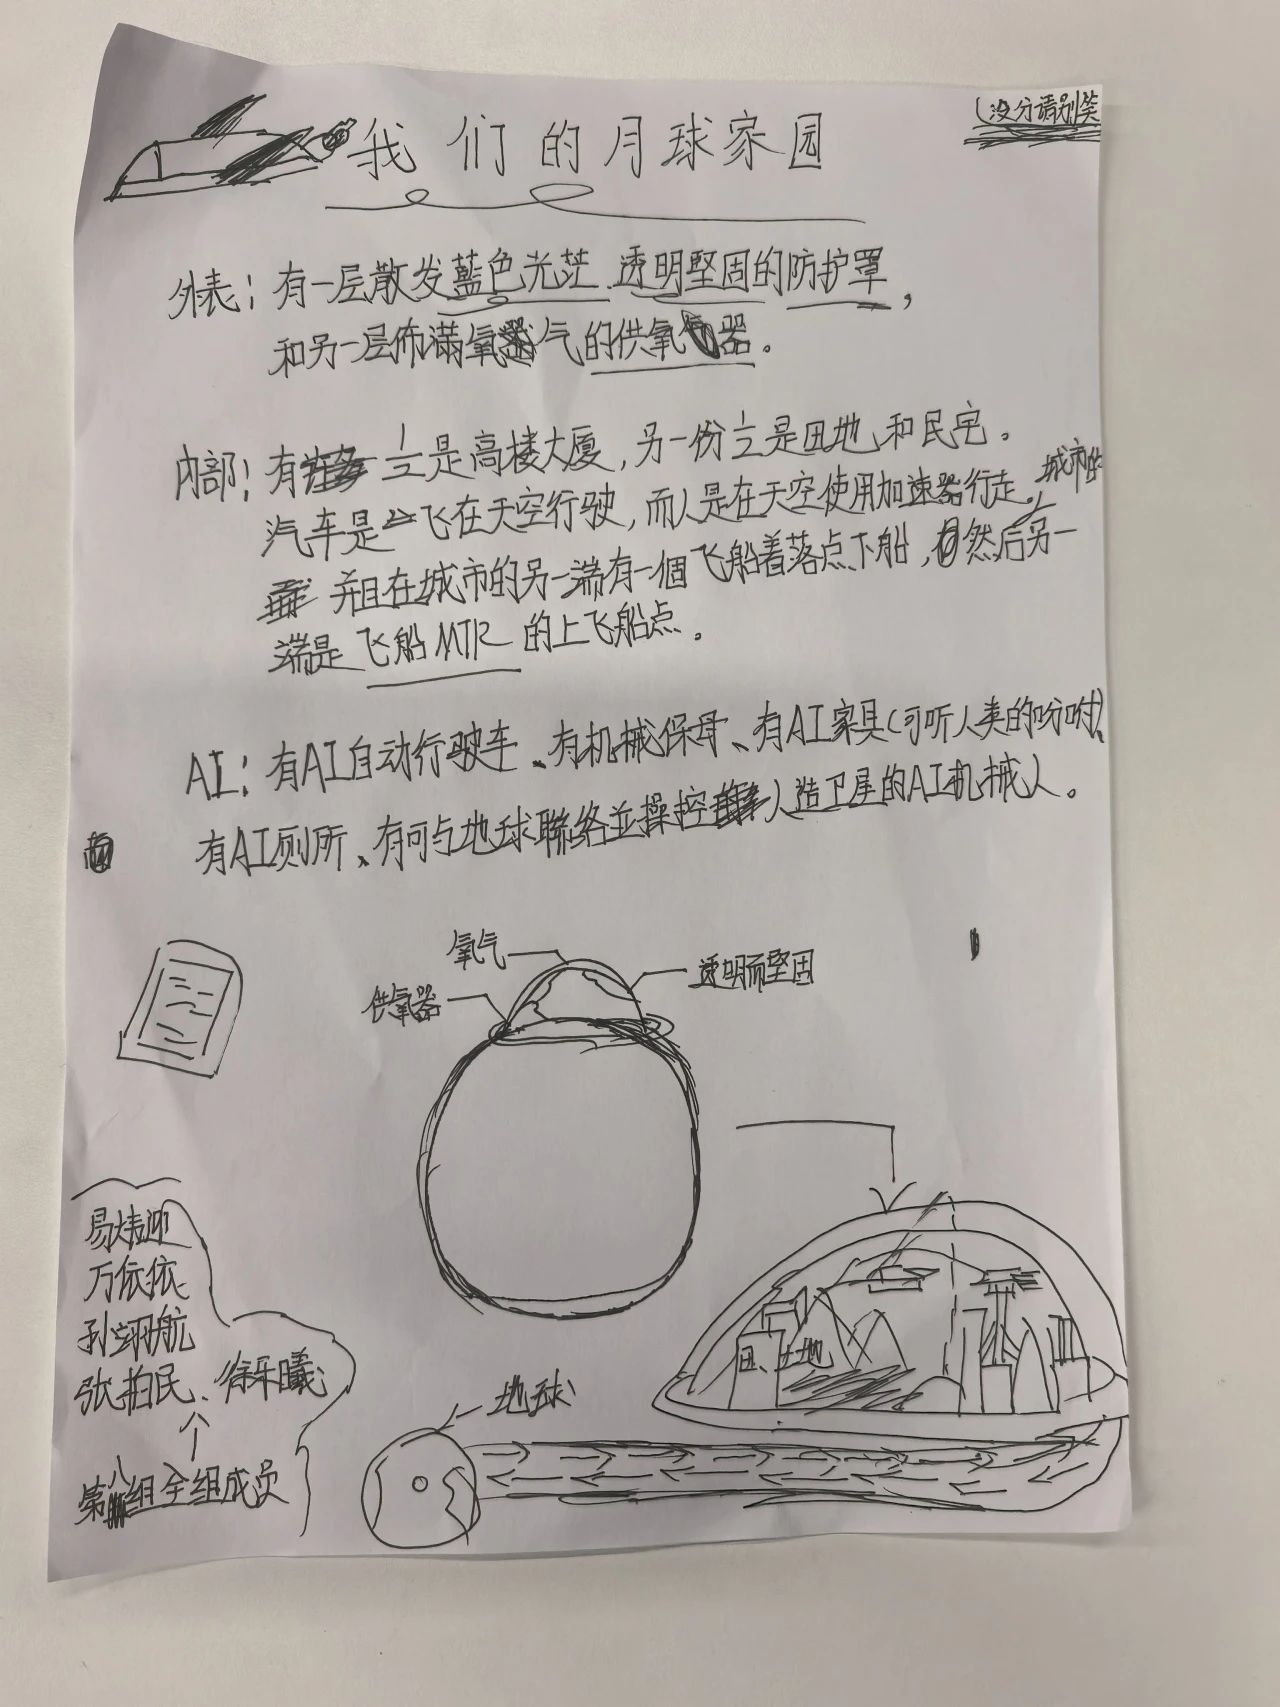 (没分请别笑
我们的月球家园
外表：有一层散发藍色光芒 透明堅固的防护罩，
和另一层佈滿氧气的供氧器。
内部：有 1/2是高楼大厦，另一份1/2是田地、和民宅。
汽车是飞在天空行驶，而人是在天空使用加速器行走。城市的
并且在城市的另一端有一個飞船着落点下船，然后另一
端是飞船MTR的上飞船点。
AI：有AI自动行驶车、有机械保母、有AI家具(可听人类的吩咐)、
有AI厕所、有可与地球聯络並操控人造卫星的AI机械人。
氧气
供氧器
透明而堅固
田、土地
地球
万依依
孙翊航
张柏民、
第八组全组成员